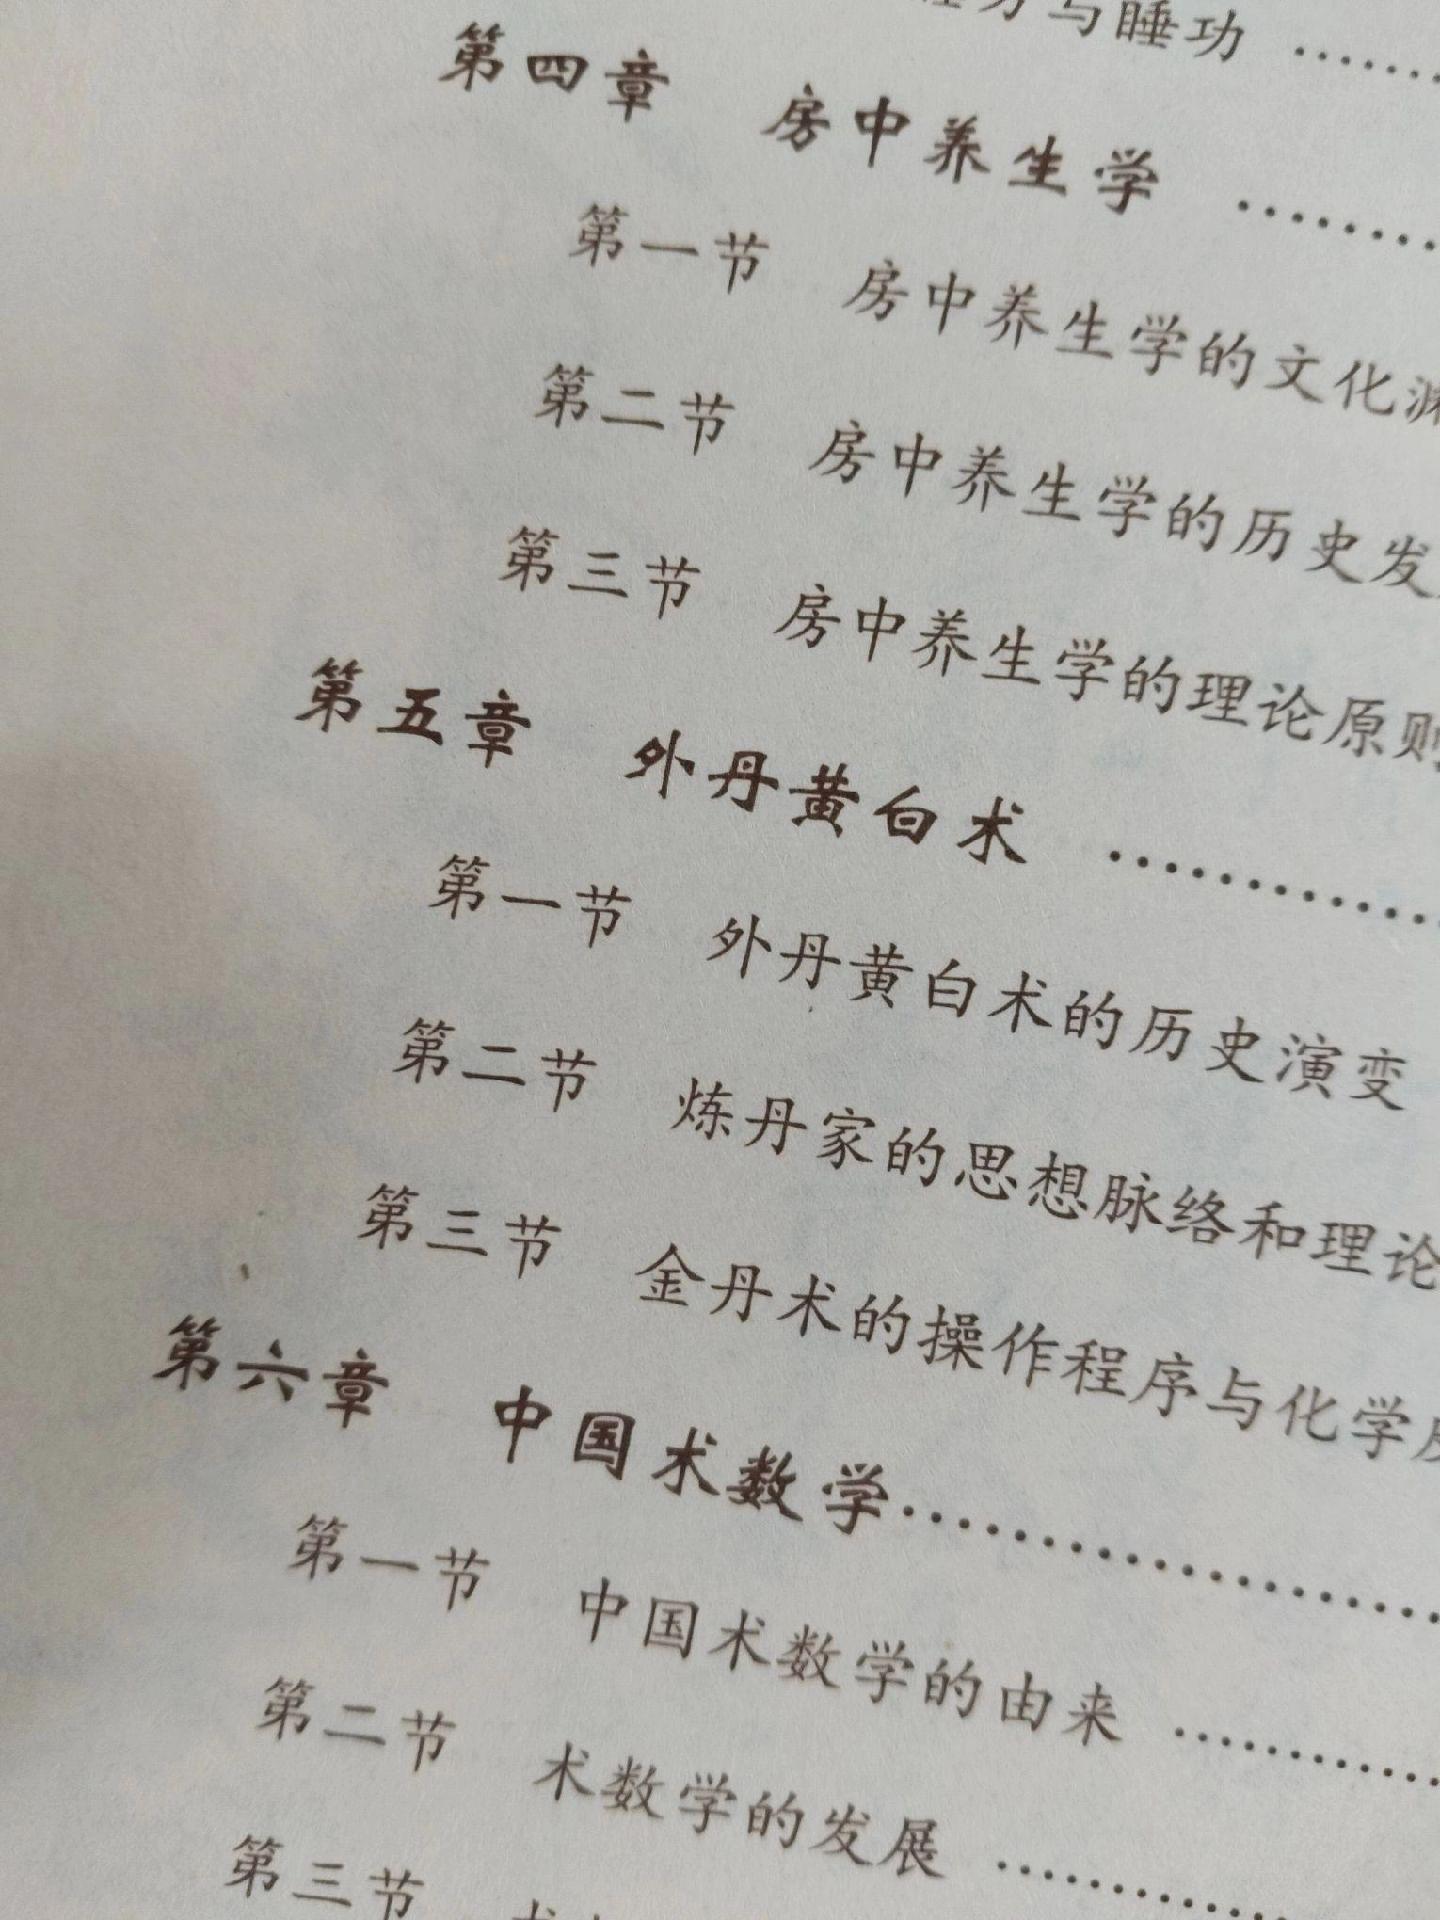 与睡功 ……
第四章 房中养生学 ……
第一节 房中养生学的文化
第二节 房中养生学的历史发
第三节 房中养生学的理论原则
第五章 外丹黄白术 ……
第一节 外丹黄白术的历史演变
第二节 炼丹家的思想脉络和理论
第三节 金丹术的操作程序与化学
第六章 中国术数学……
第一节 中国术数学的由来 ……
第二节 术数学的发展 ……
第三节